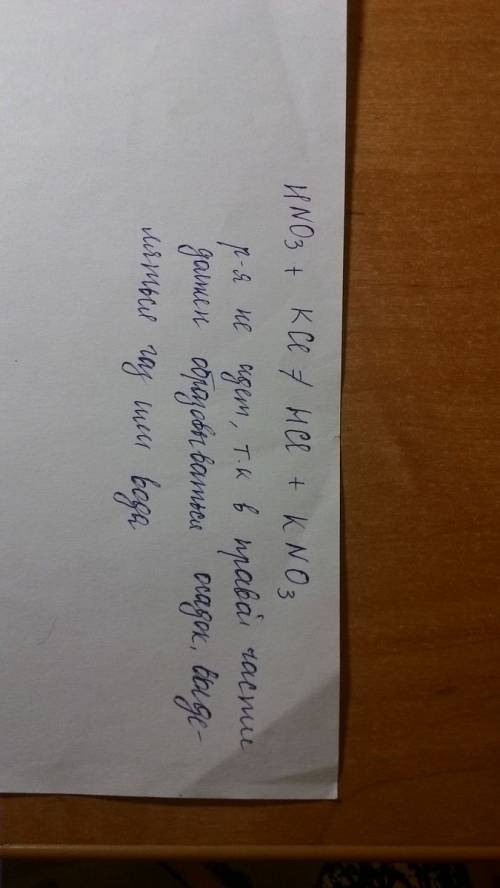 HNO3 + KCl ≠ HCl + KNO3
р-я не идет, т.к в правой части
должен образовываться осадок, выде-
ляться газ или вода